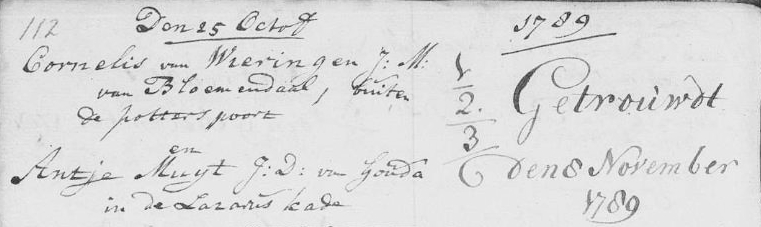 112
Den 25 Octob
1789
Cornelis van Wieringen J: M:
van Bloemendaal, buiten
de potters poort
en
Antje Muyt J: D: van Gouda
in de Lazarus kade
1
2.
3
Getrouwdt
den 8 November
1789